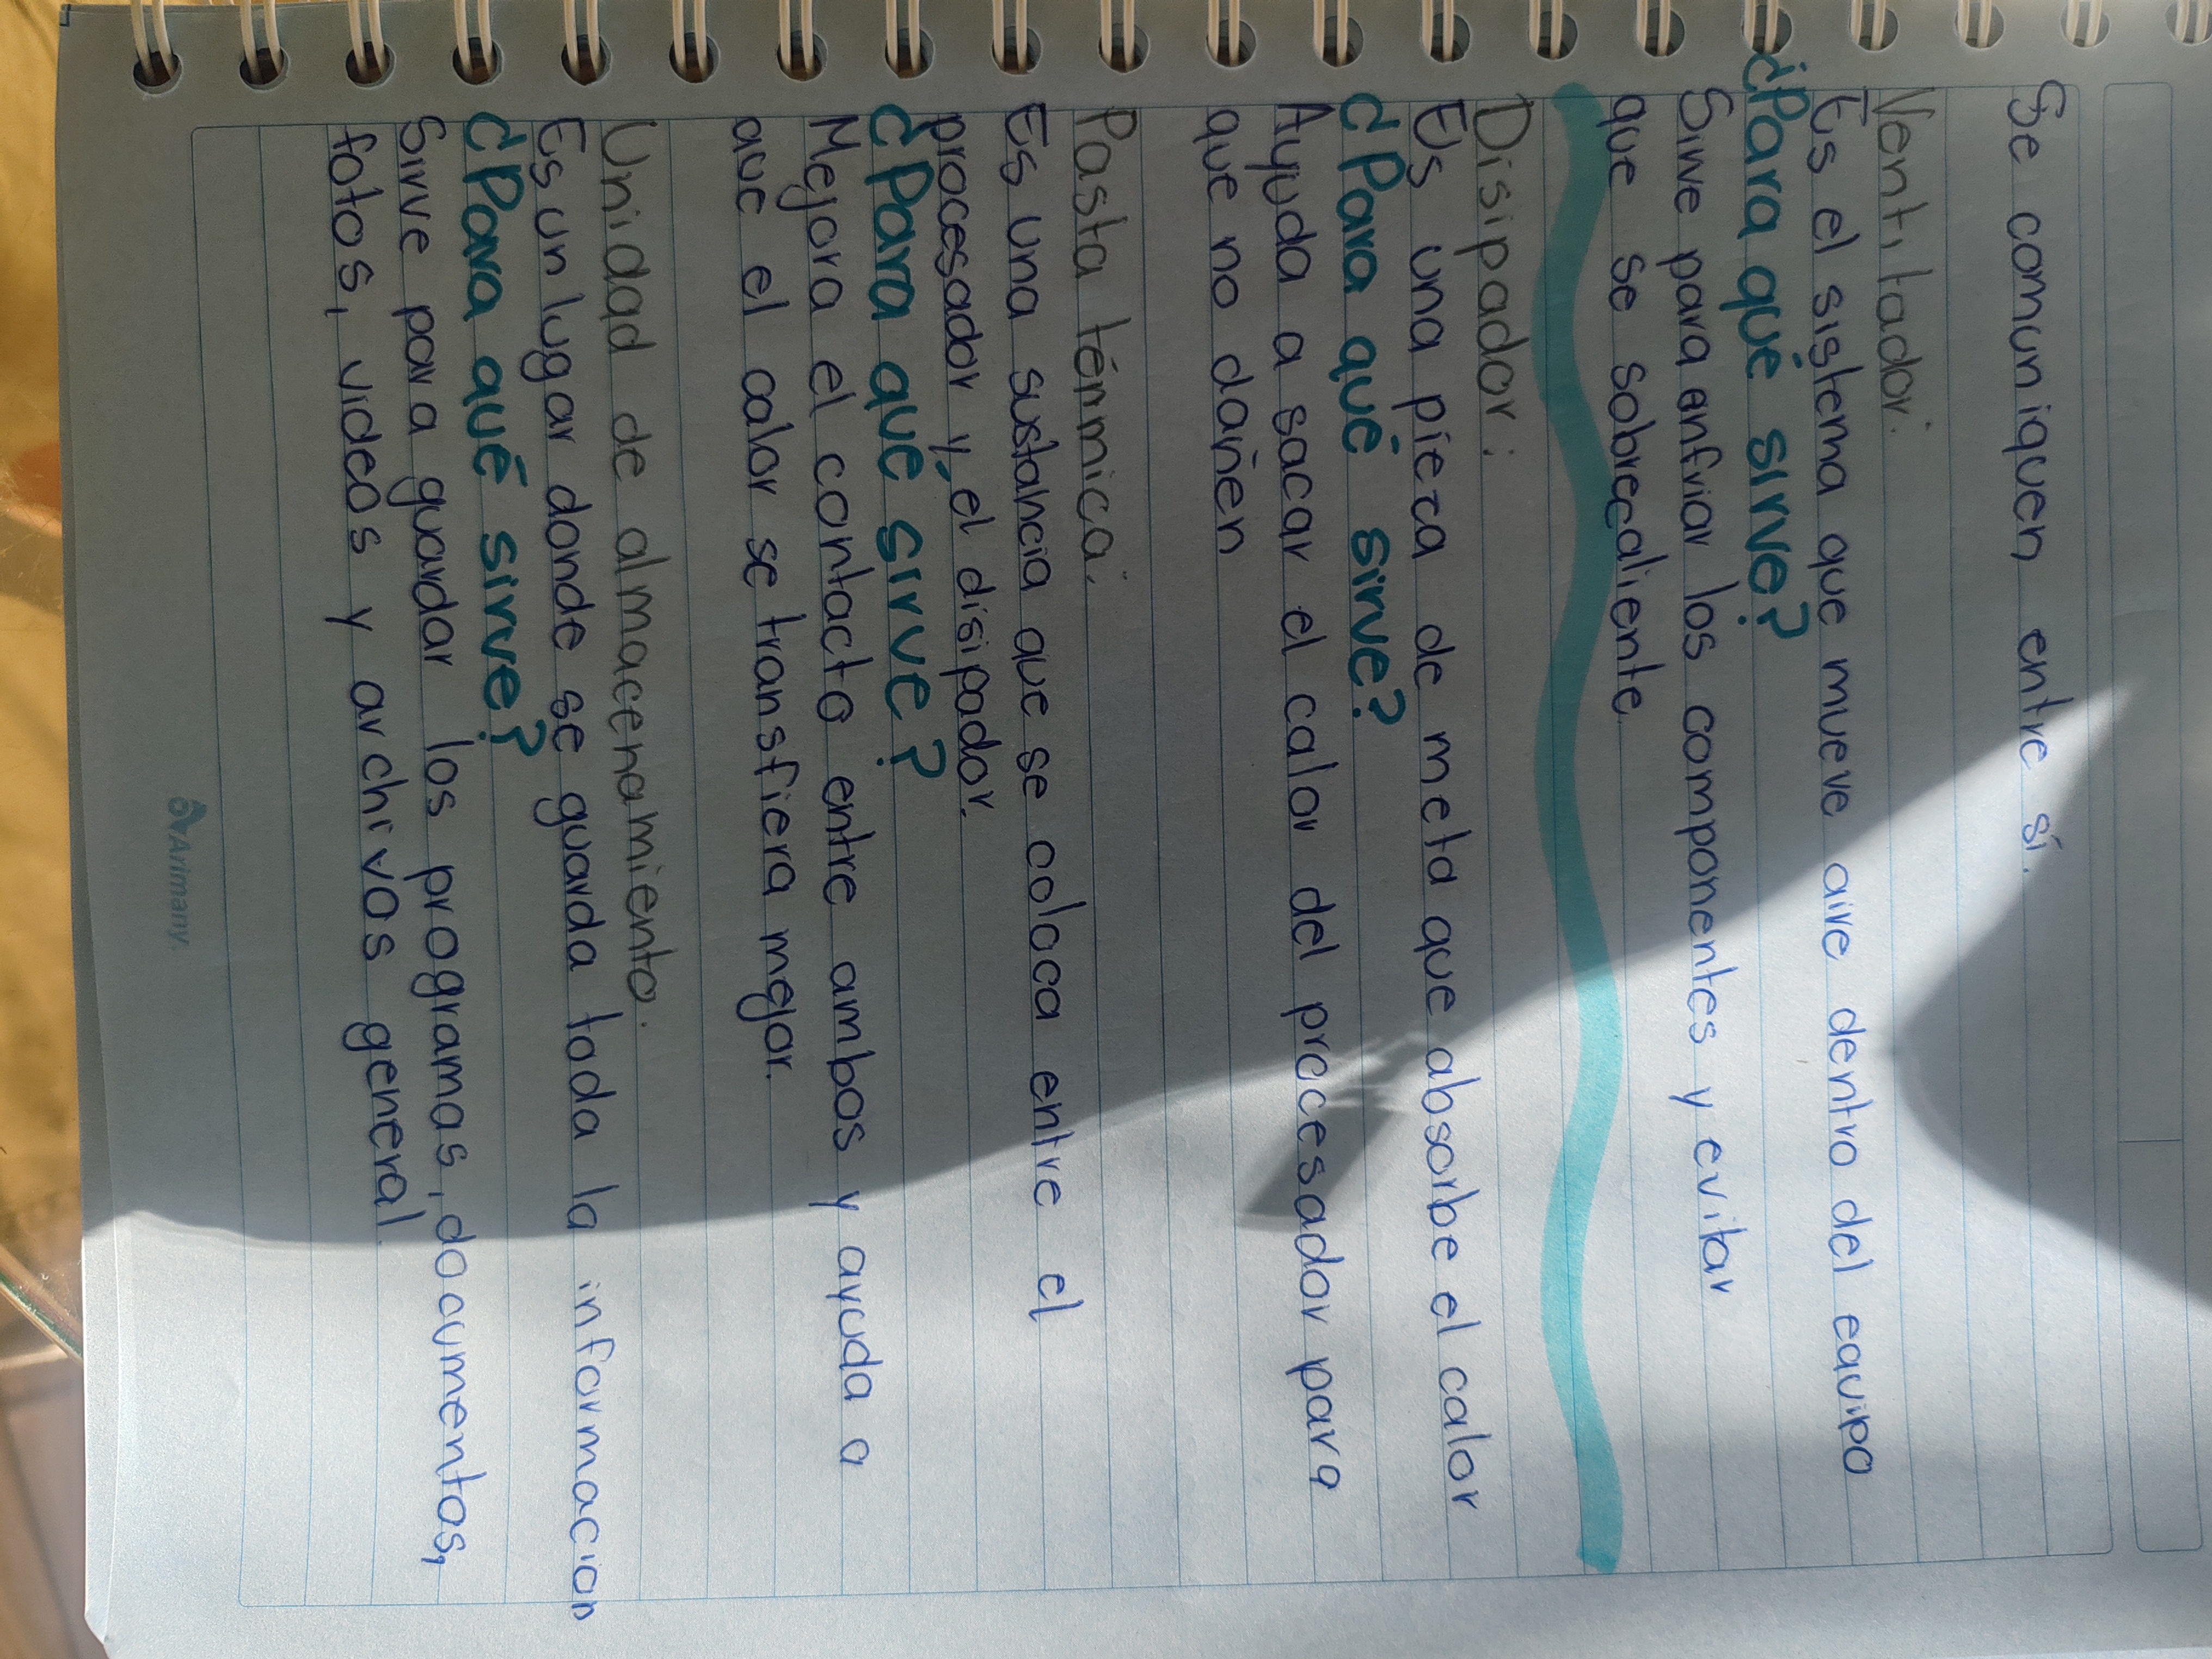 Se comuniquen entre sí.
Ventilador:
Es el sistema que mueve aire dentro del equipo
¿Para qué sirve?
Sirve para enfriar los componentes y evitar
que se sobrecaliente.
Disipador:
Es una pieza de metal que absorbe el calor
¿Para qué sirve?
Ayuda a sacar el calor del procesador para
que no dañen
Pasta térmica:
Es una sustancia que se coloca entre el
procesador y el disipador.
¿Para que sirve?
Mejora el contacto entre ambos y ayuda a
que el calor se transfiera mejor.
Unidad de almacenamiento:
Es un lugar donde se guarda toda la informacion
¿Para qué sirve?
Sirve para guardar los programas, documentos,
fotos, videos y archivos general.
Arimany.